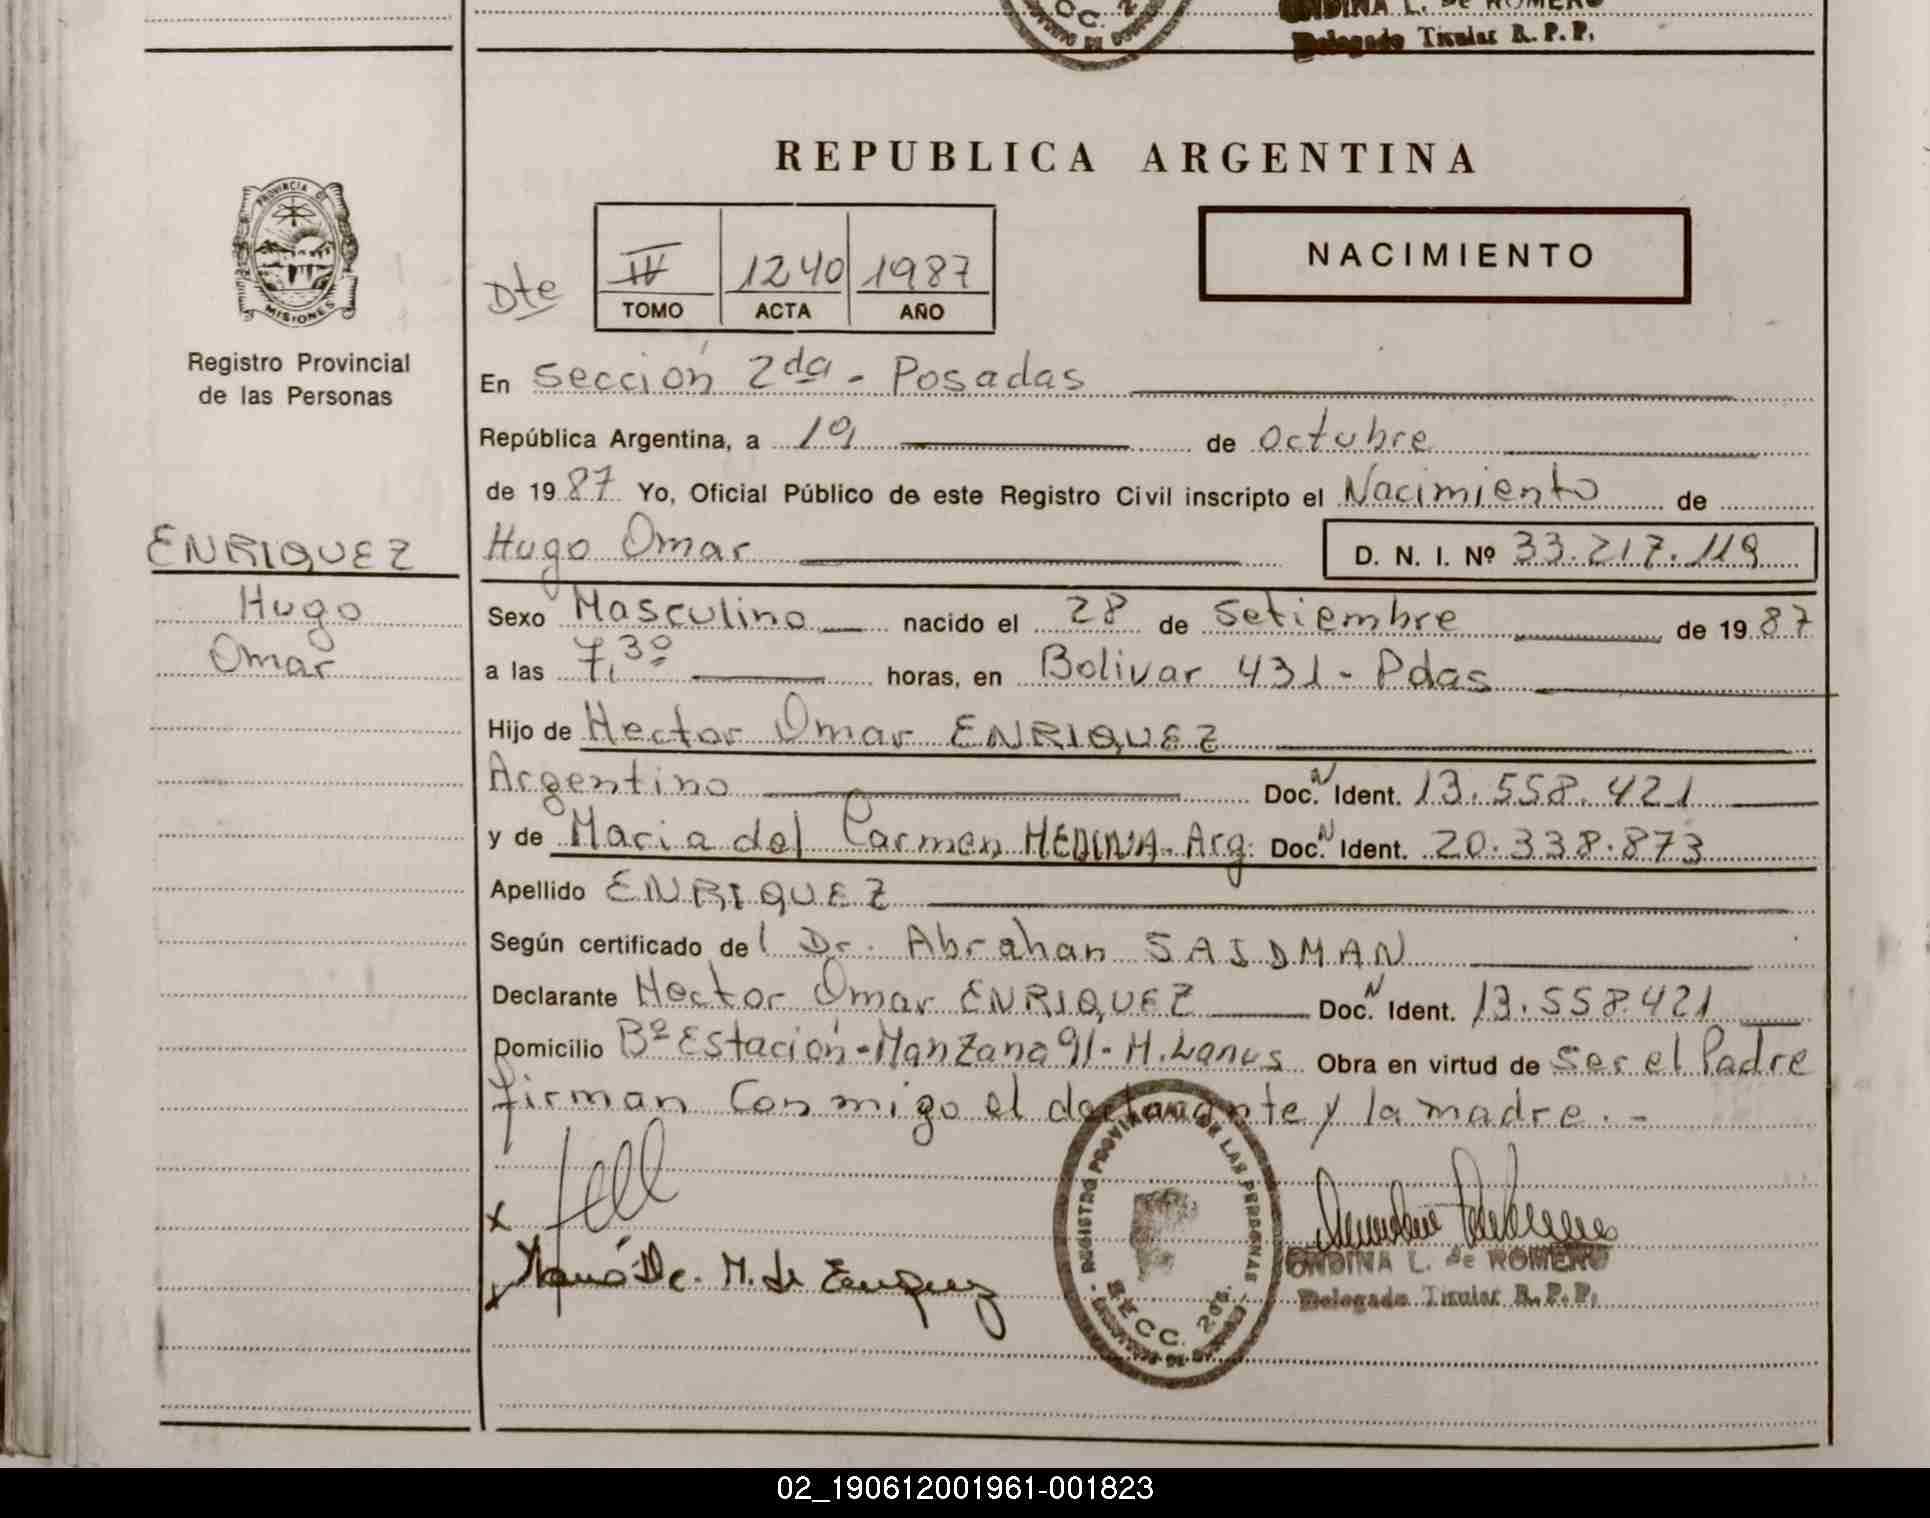 ONDINA L. de ROMERO
Delegado Titular R. P. P.
REPUBLICA ARGENTINA
PROVINCIA DE
MISIONES
Registro Provincial
de las Personas
Dte
IV 1240 1987
TOMO ACTA AÑO
NACIMIENTO
En Sección 2da - Posadas
República Argentina, a 19 de Octubre
de 1987 Yo, Oficial Público de este Registro Civil inscripto el Nacimiento de
ENRIQUEZ
Hugo
Omar
Hugo Omar D. N. I. Nº 33.217.119
Sexo Masculino nacido el 28 de Setiembre de 1987
a las 7,30 horas, en Bolivar 431 - Pdas
Hijo de Hector Omar ENRIQUEZ
Argentino Doc. N Ident. 13.558.421
y de Maria del Carmen MEDINA - Arg. Doc. N Ident. 20.338.873
Apellido ENRIQUEZ
Según certificado del Dr. Abrahan SAIDMAN
Declarante Hector Omar ENRIQUEZ Doc. N Ident. 13.558.421
Domicilio Bº Estación - Manzana 91 - H. Lanus Obra en virtud de Ser el Padre
firman conmigo el declarante y la madre. -
x
x M. de Enriquez
REGISTRO PROVINCIAL DE LAS PERSONAS
SECC. 2da.
ONDINA L. de ROMERO
Delegado Titular R. P. P.
02_190612001961-001823